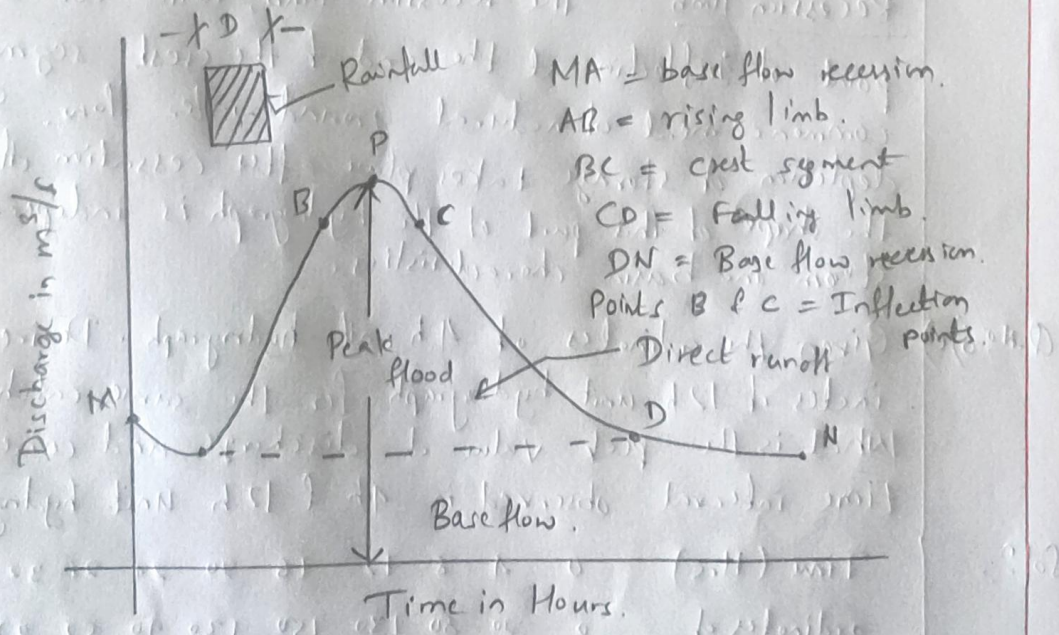 D
Rainfall
MA = base flow recession.
AB = rising limb.
BC = crest segment
CD = Falling limb.
DN = Base flow recession.
Points B & C = Inflection
points.
P
B
C
Discharge in m³/s
Peak
flood
Direct runoff
M
D
N
Base flow.
Time in Hours.